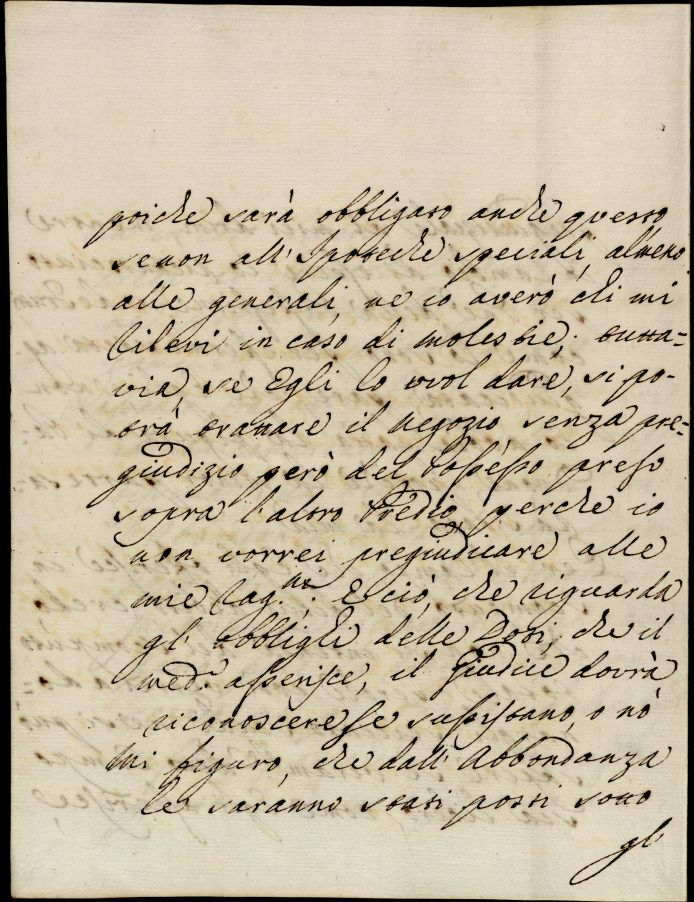 poiche sarà obbligato anche questo
se non all' Ipoteche speciali, almeno
alle generali, ne io averò chi mi
rilevi in caso di molestie; tutta=
via, se Egli lo vuol dare, si po-
trà trattare il negozio senza pre=
giudizio però del Possesso preso
sopra l'altro Predio, perche io
non vorrei pregiudicare alle
mie rag.ni; E ciò, che riguarda
gl' obblighi delle Doti, che il
med.o asserisce, il Giudice dovrà
riconoscere se sussistano, o nò
Mi figuro, che dall' Abbondanza
le saranno stati posti sotto
gl'